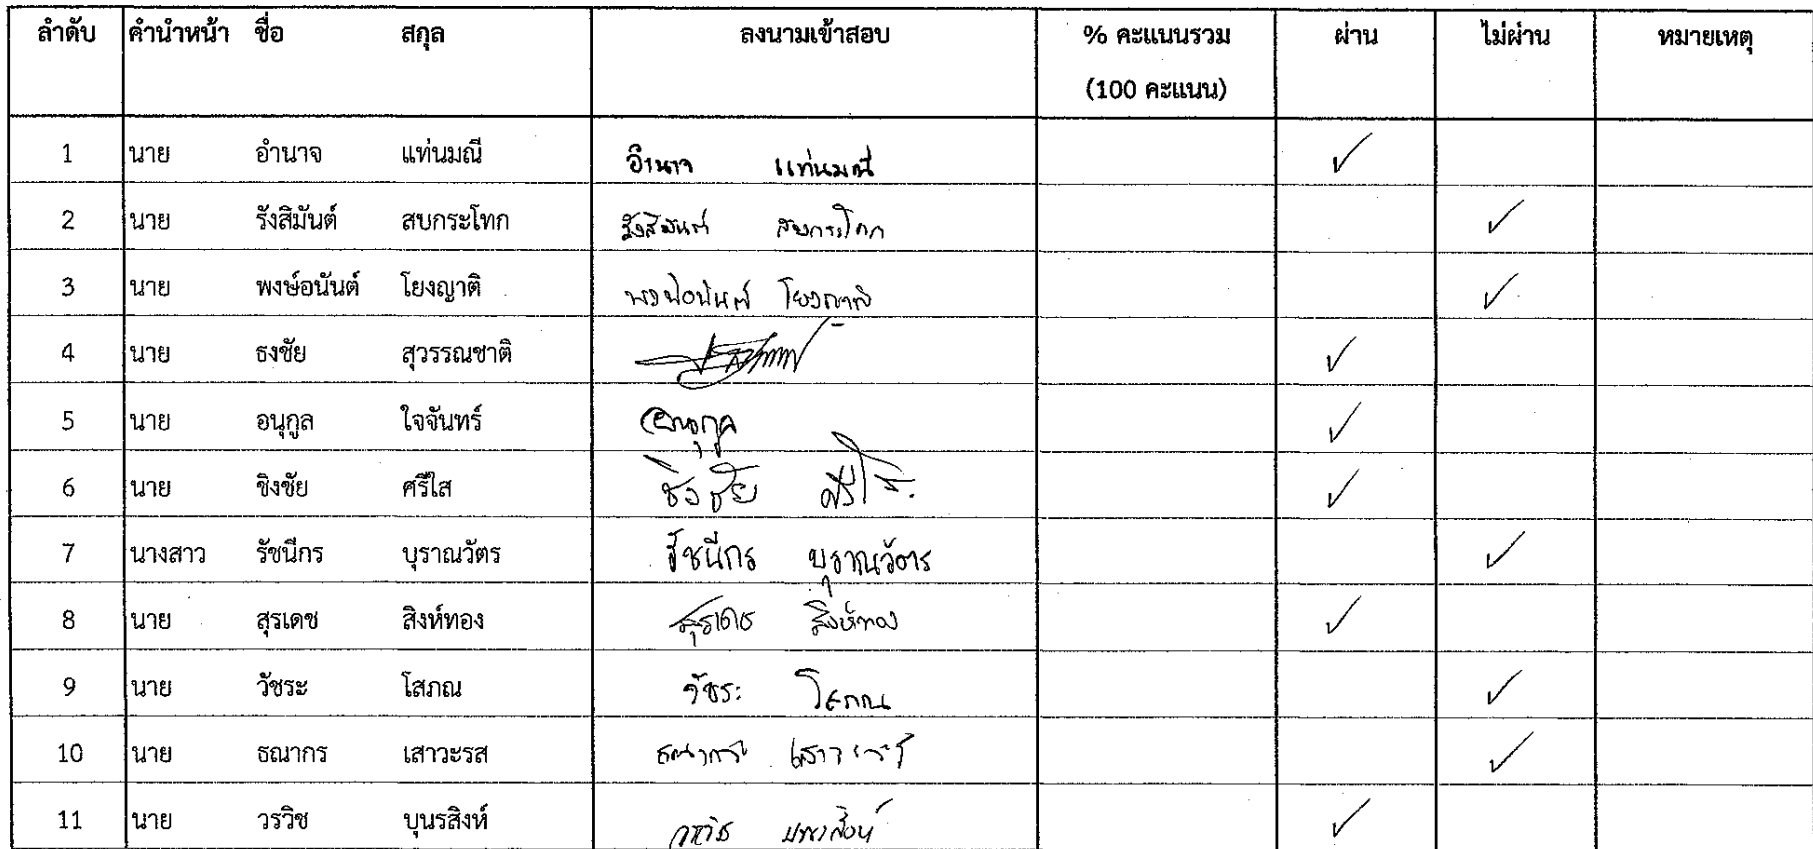 ลำดับ คำนำหน้า ชื่อ สกุล ลงนามเข้าสอบ % คะแนนรวม ผ่าน ไม่ผ่าน หมายเหตุ
(100 คะแนน)
1 นาย อำนาจ แท่นมณี อำนาจ แท่นมณี ✓
2 นาย รังสิมันต์ สบกระโทก รังสิมันต์ สบกระโทก ✓
3 นาย พงษ์อนันต์ โยงญาติ พงษ์อนันต์ โยงญาติ ✓
4 นาย ธงชัย สุวรรณชาติ ✓
5 นาย อนุกูล ใจจันทร์ อนุกูล ✓
6 นาย ชิงชัย ศรีใส ชิงชัย ศรีใส ✓
7 นางสาว รัชนีกร บุราณวัตร รัชนีกร บุราณวัตร ✓
8 นาย สุรเดช สิงห์ทอง สุรเดช สิงห์ทอง ✓
9 นาย วัชระ โสภณ วัชระ โสภณ ✓
10 นาย ธณากร เสาวะรส ธณากร เสาวะรส ✓
11 นาย วรวิช บุนรสิงห์ วรวิช ✓